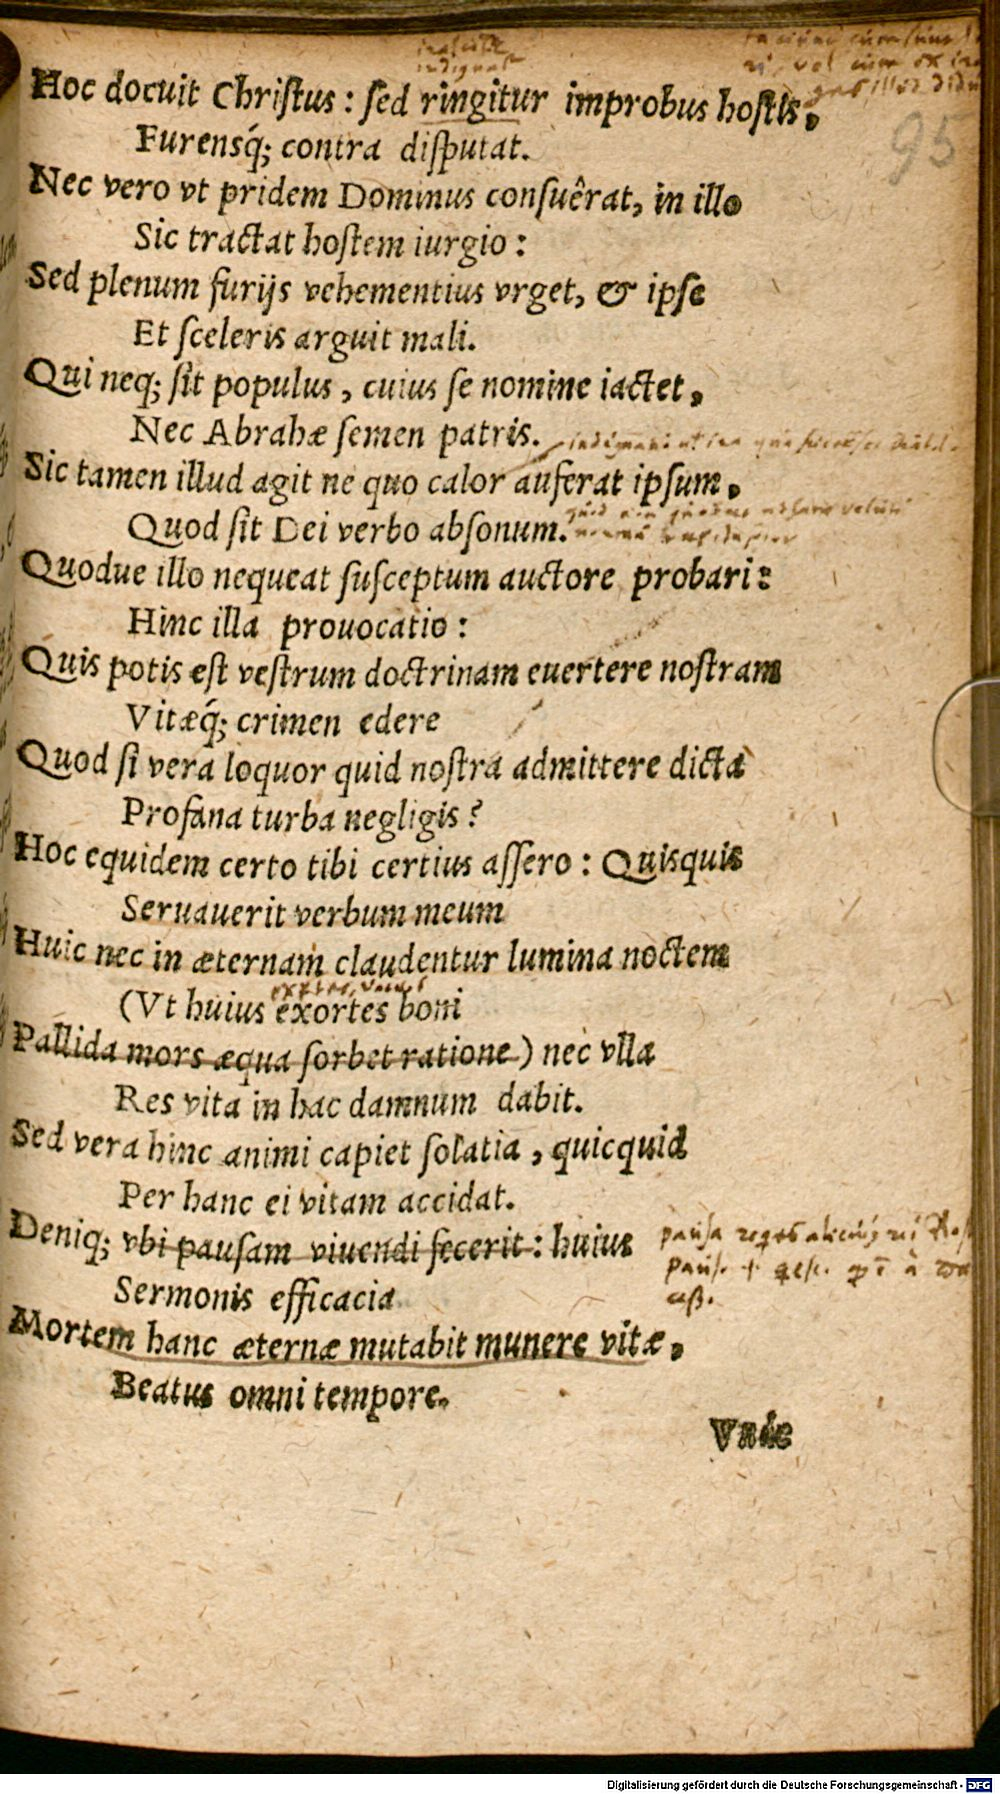 Hoc docuit Christus : sed ringitur improbus hostis,
95
Furensq́; contra disputat.
Nec vero vt pridem Dominus consuêrat, in illo
Sic tractat hostem iurgio :
Sed plenum furijs vehementius vrget, & ipse
Et sceleris arguit mali.
Qui neq; sit populus , cuius se nomine iactet ,
Nec Abrahæ semen patris.
Sic tamen illud agit ne quo calor auferat ipsum ,
Quod sit Dei verbo absonum.
Quodue illo nequeat susceptum auctore probari :
Hinc illa prouocatio :
Quis potis est vestrum doctrinam euertere nostram
Vitæq́; crimen edere
Quod si vera loquor quid nostra admittere dicta
Profana turba negligis ?
Hoc equidem certo tibi certius assero : Quisquis
Seruauerit verbum meum
Huic nec in æternam claudentur lumina noctem
(Vt huius exortes boni
Pallida mors æqua sorbet ratione ) nec vlla
Res vita in hac damnum dabit.
Sed vera hinc animi capiet solatia , quicquid
Per hanc ei vitam accidat.
Deniq; vbi pausam viuendi fecerit : huius
pausa
Sermonis efficacia
Mortem hanc æternæ mutabit munere vitæ ,
Beatus omni tempore.
Vnic
Digitalisierung gefördert durch die Deutsche Forschungsgemeinschaft - DFG